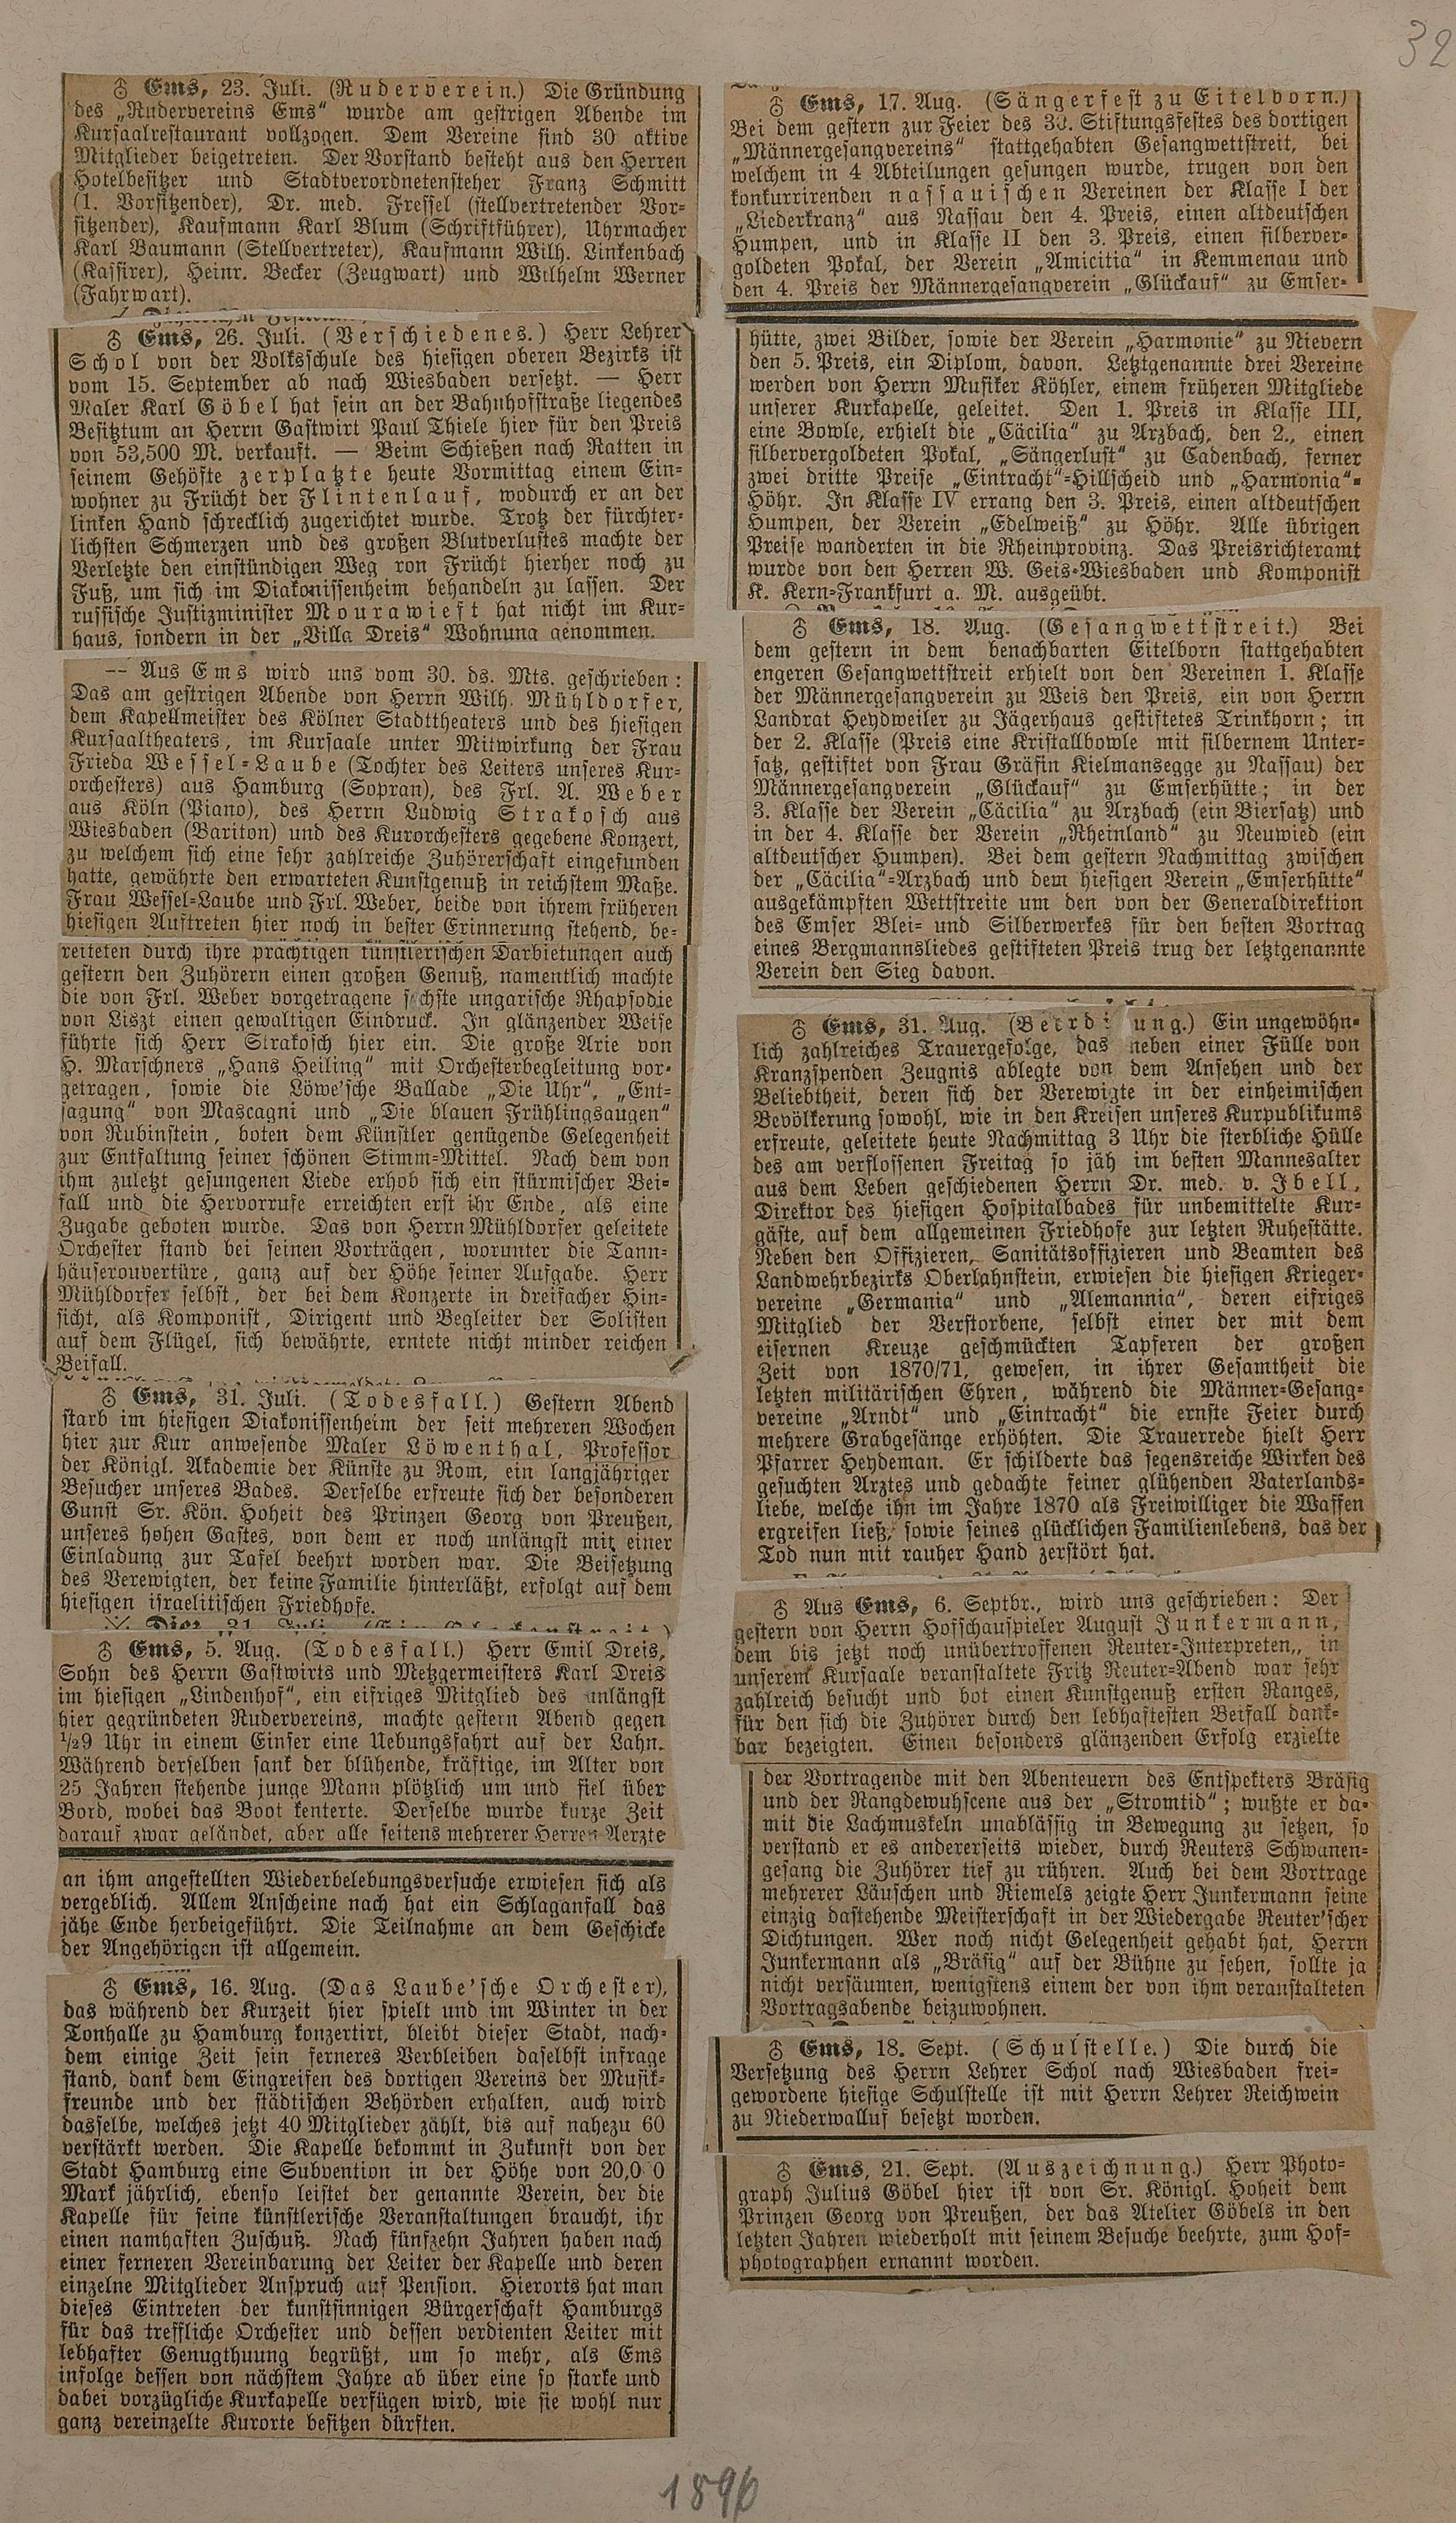 32
♁ Ems, 23. Juli. (Ruderverein.) Die Gründung
des „Rudervereins Ems“ wurde am gestrigen Abende im
Kursaalrestaurant vollzogen. Dem Vereine sind 30 aktive
Mitglieder beigetreten. Der Vorstand besteht aus den Herren
Hotelbesitzer und Stadtverordnetensteher Franz Schmitt
(1. Vorsitzender), Dr. med. Fressel (stellvertretender Vor-
sitzender), Kaufmann Karl Blum (Schriftführer), Uhrmacher
Karl Baumann (Stellvertreter), Kaufmann Wilh. Linkenbach
(Kassirer), Heinr. Becker (Zeugwart) und Wilhelm Werner
(Fahrwart).
♁ Ems, 26. Juli. (Verschiedenes.) Herr Lehrer
Schol von der Volksschule des hiesigen oberen Bezirks ist
vom 15. September ab nach Wiesbaden versetzt. — Herr
Maler Karl Göbel hat sein an der Bahnhofstraße liegendes
Besitztum an Herrn Gastwirt Paul Thiele hier für den Preis
von 53,500 M. verkauft. — Beim Schießen nach Ratten in
seinem Gehöfte zerplatzte heute Vormittag einem Ein-
wohner zu Frücht der Flintenlauf, wodurch er an der
linken Hand schrecklich zugerichtet wurde. Trotz der fürchter-
lichsten Schmerzen und des großen Blutverlustes machte der
Verletzte den einstündigen Weg ron Frücht hierher noch zu
Fuß, um sich im Diakonissenheim behandeln zu lassen. Der
russische Justizminister Mourawieff hat nicht im Kur-
haus, sondern in der „Villa Dreis“ Wohnung genommen.
— Aus Ems wird uns vom 30. ds. Mts. geschrieben:
Das am gestrigen Abende von Herrn Wilh. Mühldorfer,
dem Kapellmeister des Kölner Stadttheaters und des hiesigen
Kursaaltheaters, im Kursaale unter Mitwirkung der Frau
Frieda Wessel-Laube (Tochter des Leiters unseres Kur-
orchesters) aus Hamburg (Sopran), des Frl. A. Weber
aus Köln (Piano), des Herrn Ludwig Strakosch aus
Wiesbaden (Bariton) und des Kurorchesters gegebene Konzert,
zu welchem sich eine sehr zahlreiche Zuhörerschaft eingefunden
hatte, gewährte den erwarteten Kunstgenuß in reichstem Maße.
Frau Wessel-Laube und Frl. Weber, beide von ihrem früheren
hiesigen Auftreten hier noch in bester Erinnerung stehend, be-
reiteten durch ihre prächtigen künstlerischen Darbietungen auch
gestern den Zuhörern einen großen Genuß, namentlich machte
die von Frl. Weber vorgetragene sechste ungarische Rhapsodie
von Liszt einen gewaltigen Eindruck. In glänzender Weise
führte sich Herr Strakosch hier ein. Die große Arie von
H. Marschners „Hans Heiling“ mit Orchesterbegleitung vor-
getragen, sowie die Löwe'sche Ballade „Die Uhr“, „Ent-
sagung“ von Mascagni und „Die blauen Frühlingsaugen“
von Rubinstein, boten dem Künstler genügende Gelegenheit
zur Entfaltung seiner schönen Stimm-Mittel. Nach dem von
ihm zuletzt gesungenen Liede erhob sich ein stürmischer Bei-
fall und die Hervorrufe erreichten erst ihr Ende, als eine
Zugabe geboten wurde. Das von Herrn Mühldorfer geleitete
Orchester stand bei seinen Vorträgen, worunter die Tann-
häuserouvertüre, ganz auf der Höhe seiner Aufgabe. Herr
Mühldorfer selbst, der bei dem Konzerte in dreifacher Hin-
sicht, als Komponist, Dirigent und Begleiter der Solisten
auf dem Flügel, sich bewährte, erntete nicht minder reichen
Beifall.
♁ Ems, 31. Juli. (Todesfall.) Gestern Abend
starb im hiesigen Diakonissenheim der seit mehreren Wochen
hier zur Kur anwesende Maler Löwenthal, Professor
der Königl. Akademie der Künste zu Rom, ein langjähriger
Besucher unseres Bades. Derselbe erfreute sich der besonderen
Gunst Sr. Kön. Hoheit des Prinzen Georg von Preußen,
unseres hohen Gastes, von dem er noch unlängst mit einer
Einladung zur Tafel beehrt worden war. Die Beisetzung
des Verewigten, der keine Familie hinterläßt, erfolgt auf dem
hiesigen israelitischen Friedhofe.
♁ Ems, 5. Aug. (Todesfall.) Herr Emil Dreis,
Sohn des Herrn Gastwirts und Metzgermeisters Karl Dreis
im hiesigen „Lindenhof“, ein eifriges Mitglied des unlängst
hier gegründeten Rudervereins, machte gestern Abend gegen
½9 Uhr in einem Einser eine Uebungsfahrt auf der Lahn.
Während derselben sank der blühende, kräftige, im Alter von
25 Jahren stehende junge Mann plötzlich um und fiel über
Bord, wobei das Boot kenterte. Derselbe wurde kurze Zeit
darauf zwar geländet, aber alle seitens mehrerer Herren Aerzte
an ihm angestellten Wiederbelebungsversuche erwiesen sich als
vergeblich. Allem Anscheine nach hat ein Schlaganfall das
jähe Ende herbeigeführt. Die Teilnahme an dem Geschicke
der Angehörigen ist allgemein.
♁ Ems, 16. Aug. (Das Laube'sche Orchester),
das während der Kurzeit hier spielt und im Winter in der
Tonhalle zu Hamburg konzertirt, bleibt dieser Stadt, nach-
dem einige Zeit sein ferneres Verbleiben daselbst infrage
stand, dank dem Eingreifen des dortigen Vereins der Musik-
freunde und der städtischen Behörden erhalten, auch wird
dasselbe, welches jetzt 40 Mitglieder zählt, bis auf nahezu 60
verstärkt werden. Die Kapelle bekommt in Zukunft von der
Stadt Hamburg eine Subvention in der Höhe von 20,0 0
Mark jährlich, ebenso leistet der genannte Verein, der die
Kapelle für seine künstlerische Veranstaltungen braucht, ihr
einen namhaften Zuschuß. Nach fünfzehn Jahren haben nach
einer ferneren Vereinbarung der Leiter der Kapelle und deren
einzelne Mitglieder Anspruch auf Pension. Hierorts hat man
dieses Eintreten der kunstsinnigen Bürgerschaft Hamburgs
für das treffliche Orchester und dessen verdienten Leiter mit
lebhafter Genugthuung begrüßt, um so mehr, als Ems
infolge dessen von nächstem Jahre ab über eine so starke und
dabei vorzügliche Kurkapelle verfügen wird, wie sie wohl nur
ganz vereinzelte Kurorte besitzen dürften.
♁ Ems, 17. Aug. (Sängerfest zu Eitelborn.)
Bei dem gestern zur Feier des 30. Stiftungsfestes des dortigen
„Männergesangvereins“ stattgehabten Gesangwettstreit, bei
welchem in 4 Abteilungen gesungen wurde, trugen von den
konkurrirenden nassauischen Vereinen der Klasse I der
„Liederkranz“ aus Nassau den 4. Preis, einen altdeutschen
Humpen, und in Klasse II den 3. Preis, einen silberver-
goldeten Pokal, der Verein „Amicitia“ in Kemmenau und
den 4. Preis der Männergesangverein „Glückauf“ zu Emser-
hütte, zwei Bilder, sowie der Verein „Harmonie“ zu Nievern
den 5. Preis, ein Diplom, davon. Letztgenannte drei Vereine
werden von Herrn Musiker Köhler, einem früheren Mitgliede
unserer Kurkapelle, geleitet. Den 1. Preis in Klasse III,
eine Bowle, erhielt die „Cäcilia“ zu Arzbach, den 2., einen
silbervergoldeten Pokal, „Sängerlust“ zu Cadenbach, ferner
zwei dritte Preise „Eintracht“-Hillscheid und „Harmonia“-
Höhr. In Klasse IV errang den 3. Preis, einen altdeutschen
Humpen, der Verein „Edelweiß“ zu Höhr. Alle übrigen
Preise wanderten in die Rheinprovinz. Das Preisrichteramt
wurde von den Herren W. Geis-Wiesbaden und Komponist
K. Kern-Frankfurt a. M. ausgeübt.
♁ Ems, 18. Aug. (Gesangwettstreit.) Bei
dem gestern in dem benachbarten Eitelborn stattgehabten
engeren Gesangwettstreit erhielt von den Vereinen 1. Klasse
der Männergesangverein zu Weis den Preis, ein von Herrn
Landrat Heydweiler zu Jägerhaus gestiftetes Trinkhorn; in
der 2. Klasse (Preis eine Kristallbowle mit silbernem Unter-
satz, gestiftet von Frau Gräfin Kielmansegge zu Nassau) der
Männergesangverein „Glückauf“ zu Emserhütte; in der
3. Klasse der Verein „Cäcilia“ zu Arzbach (ein Biersatz) und
in der 4. Klasse der Verein „Rheinland“ zu Neuwied (ein
altdeutscher Humpen). Bei dem gestern Nachmittag zwischen
der „Cäcilia“-Arzbach und dem hiesigen Verein „Emserhütte“
ausgekämpften Wettstreite um den von der Generaldirektion
des Emser Blei- und Silberwerkes für den besten Vortrag
eines Bergmannsliedes gestifteten Preis trug der letztgenannte
Verein den Sieg davon.
♁ Ems, 31. Aug. (Beerdi ung.) Ein ungewöhn-
lich zahlreiches Trauergefolge, das neben einer Fülle von
Kranzspenden Zeugnis ablegte von dem Ansehen und der
Beliebtheit, deren sich der Verewigte in der einheimischen
Bevölkerung sowohl, wie in den Kreisen unseres Kurpublikums
erfreute, geleitete heute Nachmittag 3 Uhr die sterbliche Hülle
des am verflossenen Freitag so jäh im besten Mannesalter
aus dem Leben geschiedenen Herrn Dr. med. v. Ibell,
Direktor des hiesigen Hospitalbades für unbemittelte Kur-
gäste, auf dem allgemeinen Friedhofe zur letzten Ruhestätte.
Neben den Offizieren, Sanitätsoffizieren und Beamten des
Landwehrbezirks Oberlahnstein, erwiesen die hiesigen Krieger-
vereine „Germania“ und „Alemannia“, deren eifriges
Mitglied der Verstorbene, selbst einer der mit dem
eisernen Kreuze geschmückten Tapferen der großen
Zeit von 1870/71, gewesen, in ihrer Gesamtheit die
letzten militärischen Ehren, während die Männer-Gesang-
vereine „Arndt“ und „Eintracht“ die ernste Feier durch
mehrere Grabgesänge erhöhten. Die Trauerrede hielt Herr
Pfarrer Heydeman. Er schilderte das segensreiche Wirken des
gesuchten Arztes und gedachte seiner glühenden Vaterlands-
liebe, welche ihn im Jahre 1870 als Freiwilliger die Waffen
ergreifen ließ, sowie seines glücklichen Familienlebens, das der
Tod nun mit rauher Hand zerstört hat.
♁ Aus Ems, 6. Septbr., wird uns geschrieben: Der
gestern von Herrn Hofschauspieler August Junkermann,
dem bis jetzt noch unübertroffenen Reuter-Interpreten,, in
unserem Kursaale veranstaltete Fritz Reuter-Abend war sehr
zahlreich besucht und bot einen Kunstgenuß ersten Ranges,
für den sich die Zuhörer durch den lebhaftesten Beifall dank-
bar bezeigten. Einen besonders glänzenden Erfolg erzielte
der Vortragende mit den Abenteuern des Entspekters Bräsig
und der Rangdewuhscene aus der „Stromtid“; wußte er da-
mit die Lachmuskeln unablässig in Bewegung zu setzen, so
verstand er es andererseits wieder, durch Reuters Schwanen-
gesang die Zuhörer tief zu rühren. Auch bei dem Vortrage
mehrerer Läuschen und Riemels zeigte Herr Junkermann seine
einzig dastehende Meisterschaft in der Wiedergabe Reuter'scher
Dichtungen. Wer noch nicht Gelegenheit gehabt hat, Herrn
Junkermann als „Bräsig“ auf der Bühne zu sehen, sollte ja
nicht versäumen, wenigstens einem der von ihm veranstalteten
Vortragsabende beizuwohnen.
♁ Ems, 18. Sept. (Schulstelle.) Die durch die
Versetzung des Herrn Lehrer Schol nach Wiesbaden frei-
gewordene hiesige Schulstelle ist mit Herrn Lehrer Reichwein
zu Niederwalluf besetzt worden.
♁ Ems, 21. Sept. (Auszeichnung.) Herr Photo-
graph Julius Göbel hier ist von Sr. Königl. Hoheit dem
Prinzen Georg von Preußen, der das Atelier Göbels in den
letzten Jahren wiederholt mit seinem Besuche beehrte, zum Hof-
photographen ernannt worden.
1896